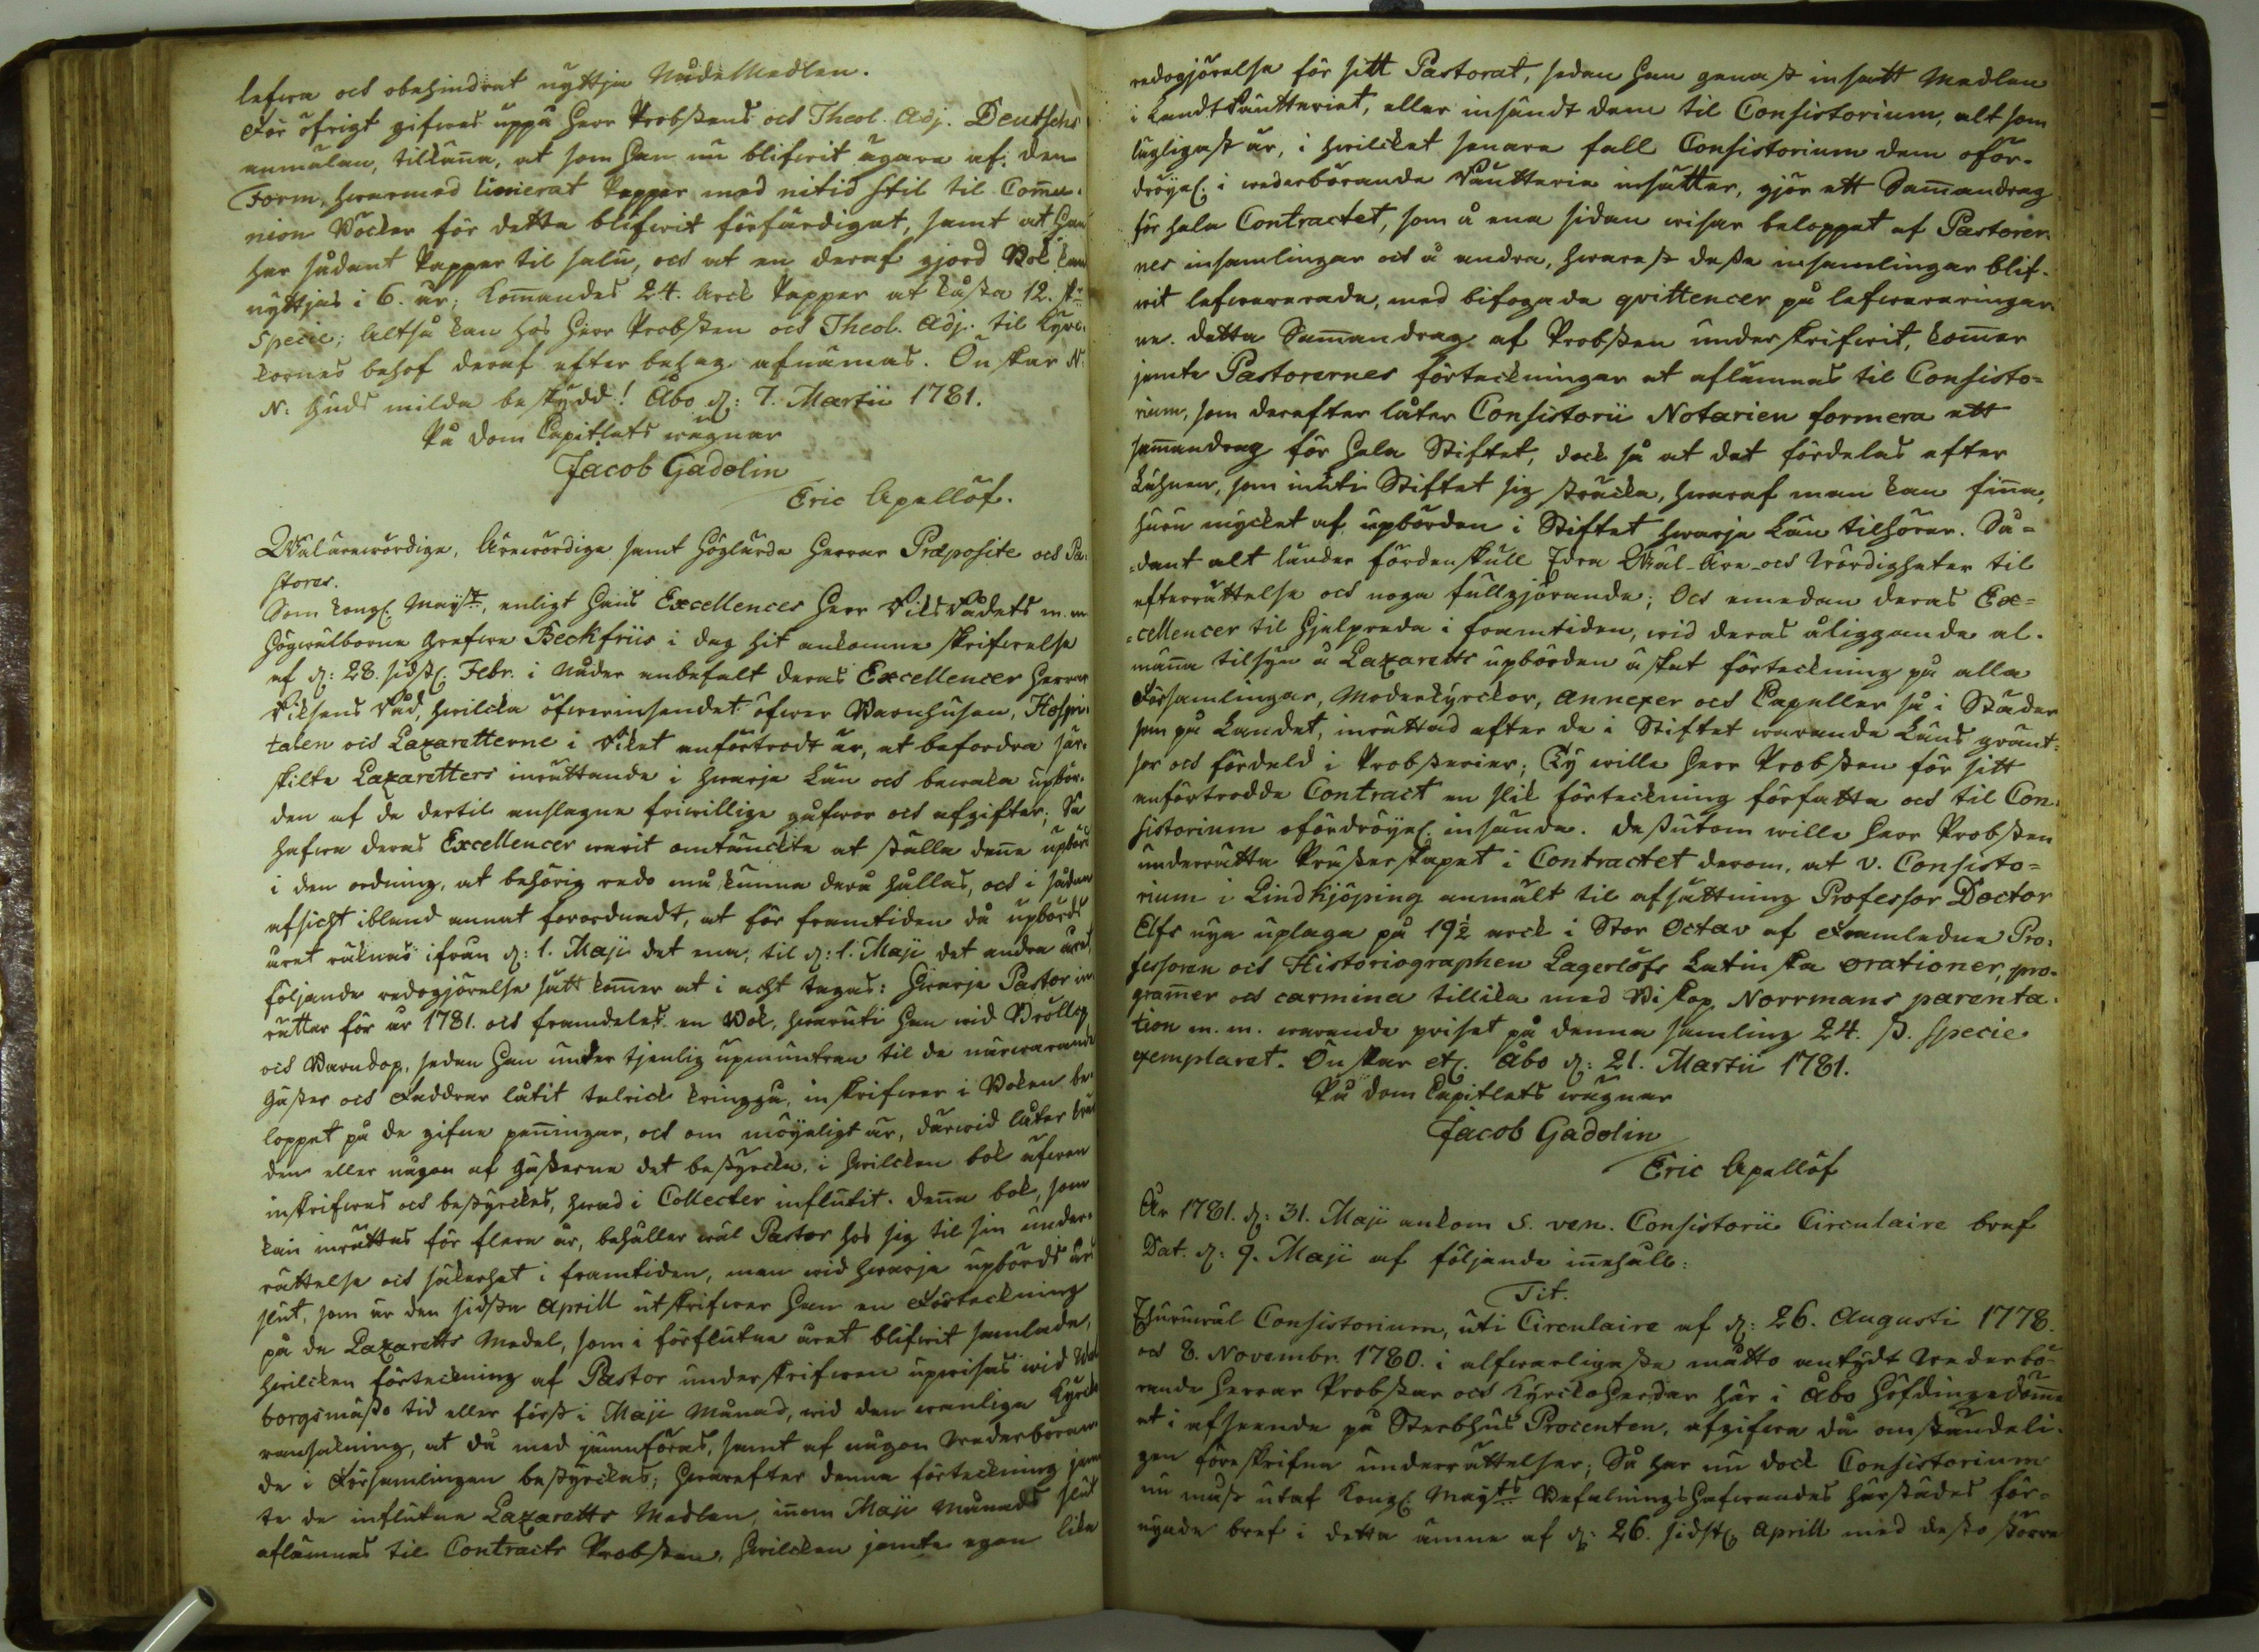 lefwa och obehindrat nyttja NådeMedlen.
För öfrigt gifwes uppå Herr Probstens och Theol. Adj. Deutschs
anmälan, tillkäña, at som Han nu blifwit ägare af den
Form, hwarmed linierat Papper med nitid stil til Com̃u-
nion Böcker för detta blifwit förfärdigat, samt at Han
har sådant Papper til salu, och at en deraf gjord Bok kan
nyttjas i 6. år; Kom̃andes 24. Arck Papper at kåsta 12. sk:
Specie; Altså kan hos Herr Probsten och Theol. Adj. til Kyrc-
kornes behof deraf efter behag afnämas. Önskar N.
N: Guds milda beskydd! Åbo d: 7. Martii 1781.
På Dom Capitlets wägnar
Jacob Gadolin
Eric Apellöf.
Wälärewördige, Ärewördige samt Höglärde Herrar Præposite och Pa-
stores.
Som Kongl: Maij:t, enligt Hans Excellences Herr RiksRådets m. m.
Högwälborne Grefwe Beckfriis i dag hit ankomne skrifwelse
af d: 28. sidstl: Febr. i Nåder anbefalt deras Excellencer Herrar
Riksens Råd, hwilcka öfwerinseendet öfwer Barnhusen, Hospi-
talen och Lazaretterne i Riket anförtrodt är, at befordra sär-
skilte Lazaretters inrättande i hwarje Län och bewaka upbör-
den af de dertil anslagne friwillige gåfwor och afgifter; Så
hafwa deras Excellencer warit omtänckte at ställa deñe upbörd
i den ordning, at behörig redo må kunna derå hållas, och i sådan
afsicht ibland annat förordnadt, at för framtiden då upbörds
året räknas ifrån d: 1. Maji det ena, til d: 1. Maji det andra året
följande redogjörelse sätt kom̃er at i acht tagas: Hwarje Pastor in-
rättar för år 1781. och framdeles en Bok, hwaruti han wid Bröllop
och Barndop, sedan Han under tjenlig upmuntran til de närwarande
Gäster och Faddrar låtit talrick kringgå, inskrifwer i Boken be-
loppet på de gifne peñingar, och om möyeligt är, därwid låter
den eller någon af Gästerne det bestyrcka, i hwilcken bok äfwen
inskrifwes och bestyrckes, hwad i Collecter influtit. Deña bok, som
kan inrättas för flera år, behåller wäl Pastor hos sig til sin under-
rättelse och säkerhet i framtiden, men wid hwarje upbörds års
slut, som är den sidsta Aprill utskrifwer Han en Förteckning
på de Lazaretts Medel, som i förflutne året blifwit samlade,
hwilcken förteckning af Pastor underskrifwen upwises wid Wal-
borgsmässo tid eller först i Maji Månad, wid den wanliga Kyrcko
ransakning, at då med jämnföras, samt af någon Wederböran-
de i Församlingen bestyrckas; hwarefter denna förteckning jem-
te de influtne Lazaretts Medlen, iñom Maji Månads slut
aflämnas til Contracts Probsten, hwilcken jemte egen lika
redogjörelse för sitt Pastorat, sedan Han genast insatt Medlen
i LandtRäntteriet, eller insändt dem til Consistorium, alt som
lägligast är, i hwilcket senare fall Consistorium dem oför-
dröyel: i wederbörande Räntterie insätter, gjör ett Sam̃andrag
för hela Contractet, som å ena sidan wisar beloppet af Pastorer-
nes insamlingar och å andra, hwarest dessa insamlingar blif-
wit lefwererade, med bifogade qvittencer på lefwereringar-
ne. Detta Sam̃andrag af Probsten underskrifwit, kom̃er
jemte Pastorernes förteckningar at aflämnas til Consisto-
rium, som derefter låter Consistorii Notarien formera ett
sam̃andrag för hela Stiftet, dock så at det fördelas efter
Lähnen, som inuti Stiftet sig sträcka, hwaraf man kan fiña,
huru mycket af upbörden i Stiftet hwarje Län tilhörer. Så-
dant alt länder fördenskull Edra Wäl-Äre- och Wördigheter til
efterrättelse och noga fullgjörande; Och emedan deras Ex-
cellencer til hjelpreda i framtiden, wid deras åliggande al-
mäña tilsyn å Lazaretts upbörden äskat förteckning på alla
Församlingar, Moderkyrckor, Annexer och Capeller så i Städer
som på Landet, inrättad efter de i Stiftet warande Läns gränt-
sor och fördeld i Probsterier; Ty wille Herr Probsten för sitt
anförtrodde Contract en slik förteckning författa och til Con-
sistorium ofördröyel: insända. Dessutom wille Herr Probsten
underrätta Prästerskapet i Contractet derom, at v. Consisto-
rium i Lindkjöping anmält til afsättning Professor Doctor
Elfs nya uplaga på 19½ arck i Stor Octav af Framledne Pro-
fessoren och Historiographen Lagerlöfs Latinska orationer, pro-
gram̃er och carmina tillika med Biskop Norrmans parenta-
tion m. m. warande priset på denna samling 24. ß. specie
exemplaret. Önskar etc. Åbo d: 21. Martii 1781.
På Dom Capitlets wägnar
Jacob Gadolin
Eric Apellöf
År 1781. d: 31. Maji ankom S. ven. Consistorii Circulaire bref
Dat. d: 9. Maji af följande iñehåll:
Tit.
Ehuruwäl Consistorium, uti Circulaire af d: 26. Augusti 1778.
och 8. Novembr. 1780. i alfwarligaste måtto antydt Wederbö-
rande Herrar Probstar och Kyrckoherdar här i Åbo Höfdingedöm̃e
at i afseende på Sterbhus Procenten, afgifwa då omständeli-
gen föreskrifne underrättelser; Så har nu dock Consistorium
nu mast utaf Kongl: Maij:ts Befalningshafwandes härstädes för-
nyade bref i detta ämne af d: 26. sidstl: Aprill med desto större